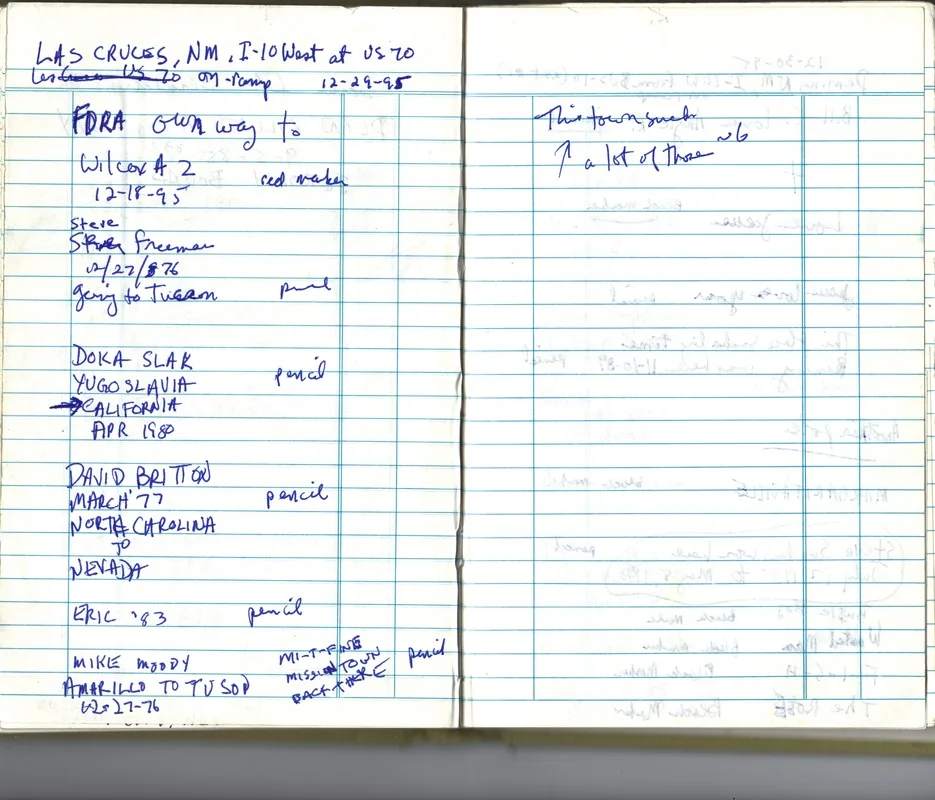 LAS CRUCES, NM, I-10 West at US 70
US 70 on-ramp 12-29-95
FDRA OWN way to
Wilcox A 2 red maker
12-18-95
Steve
Freeman
12/27/76
going to Tucson pencil
DOKA SLAK
YUGOSLAVIA pencil
→ CALIFORNIA
APR 1980
DAVID BRITTON
MARCH '77 pencil
NORTH CAROLINA
TO
NEVADA
ERIC '83 pencil
MIKE MOODY
AMARILLO TO TUSOD
12-27-76
MI-T-FINE
MISSION TOWN
BACK THERE pencil
This town sucks
↑ a lot of those